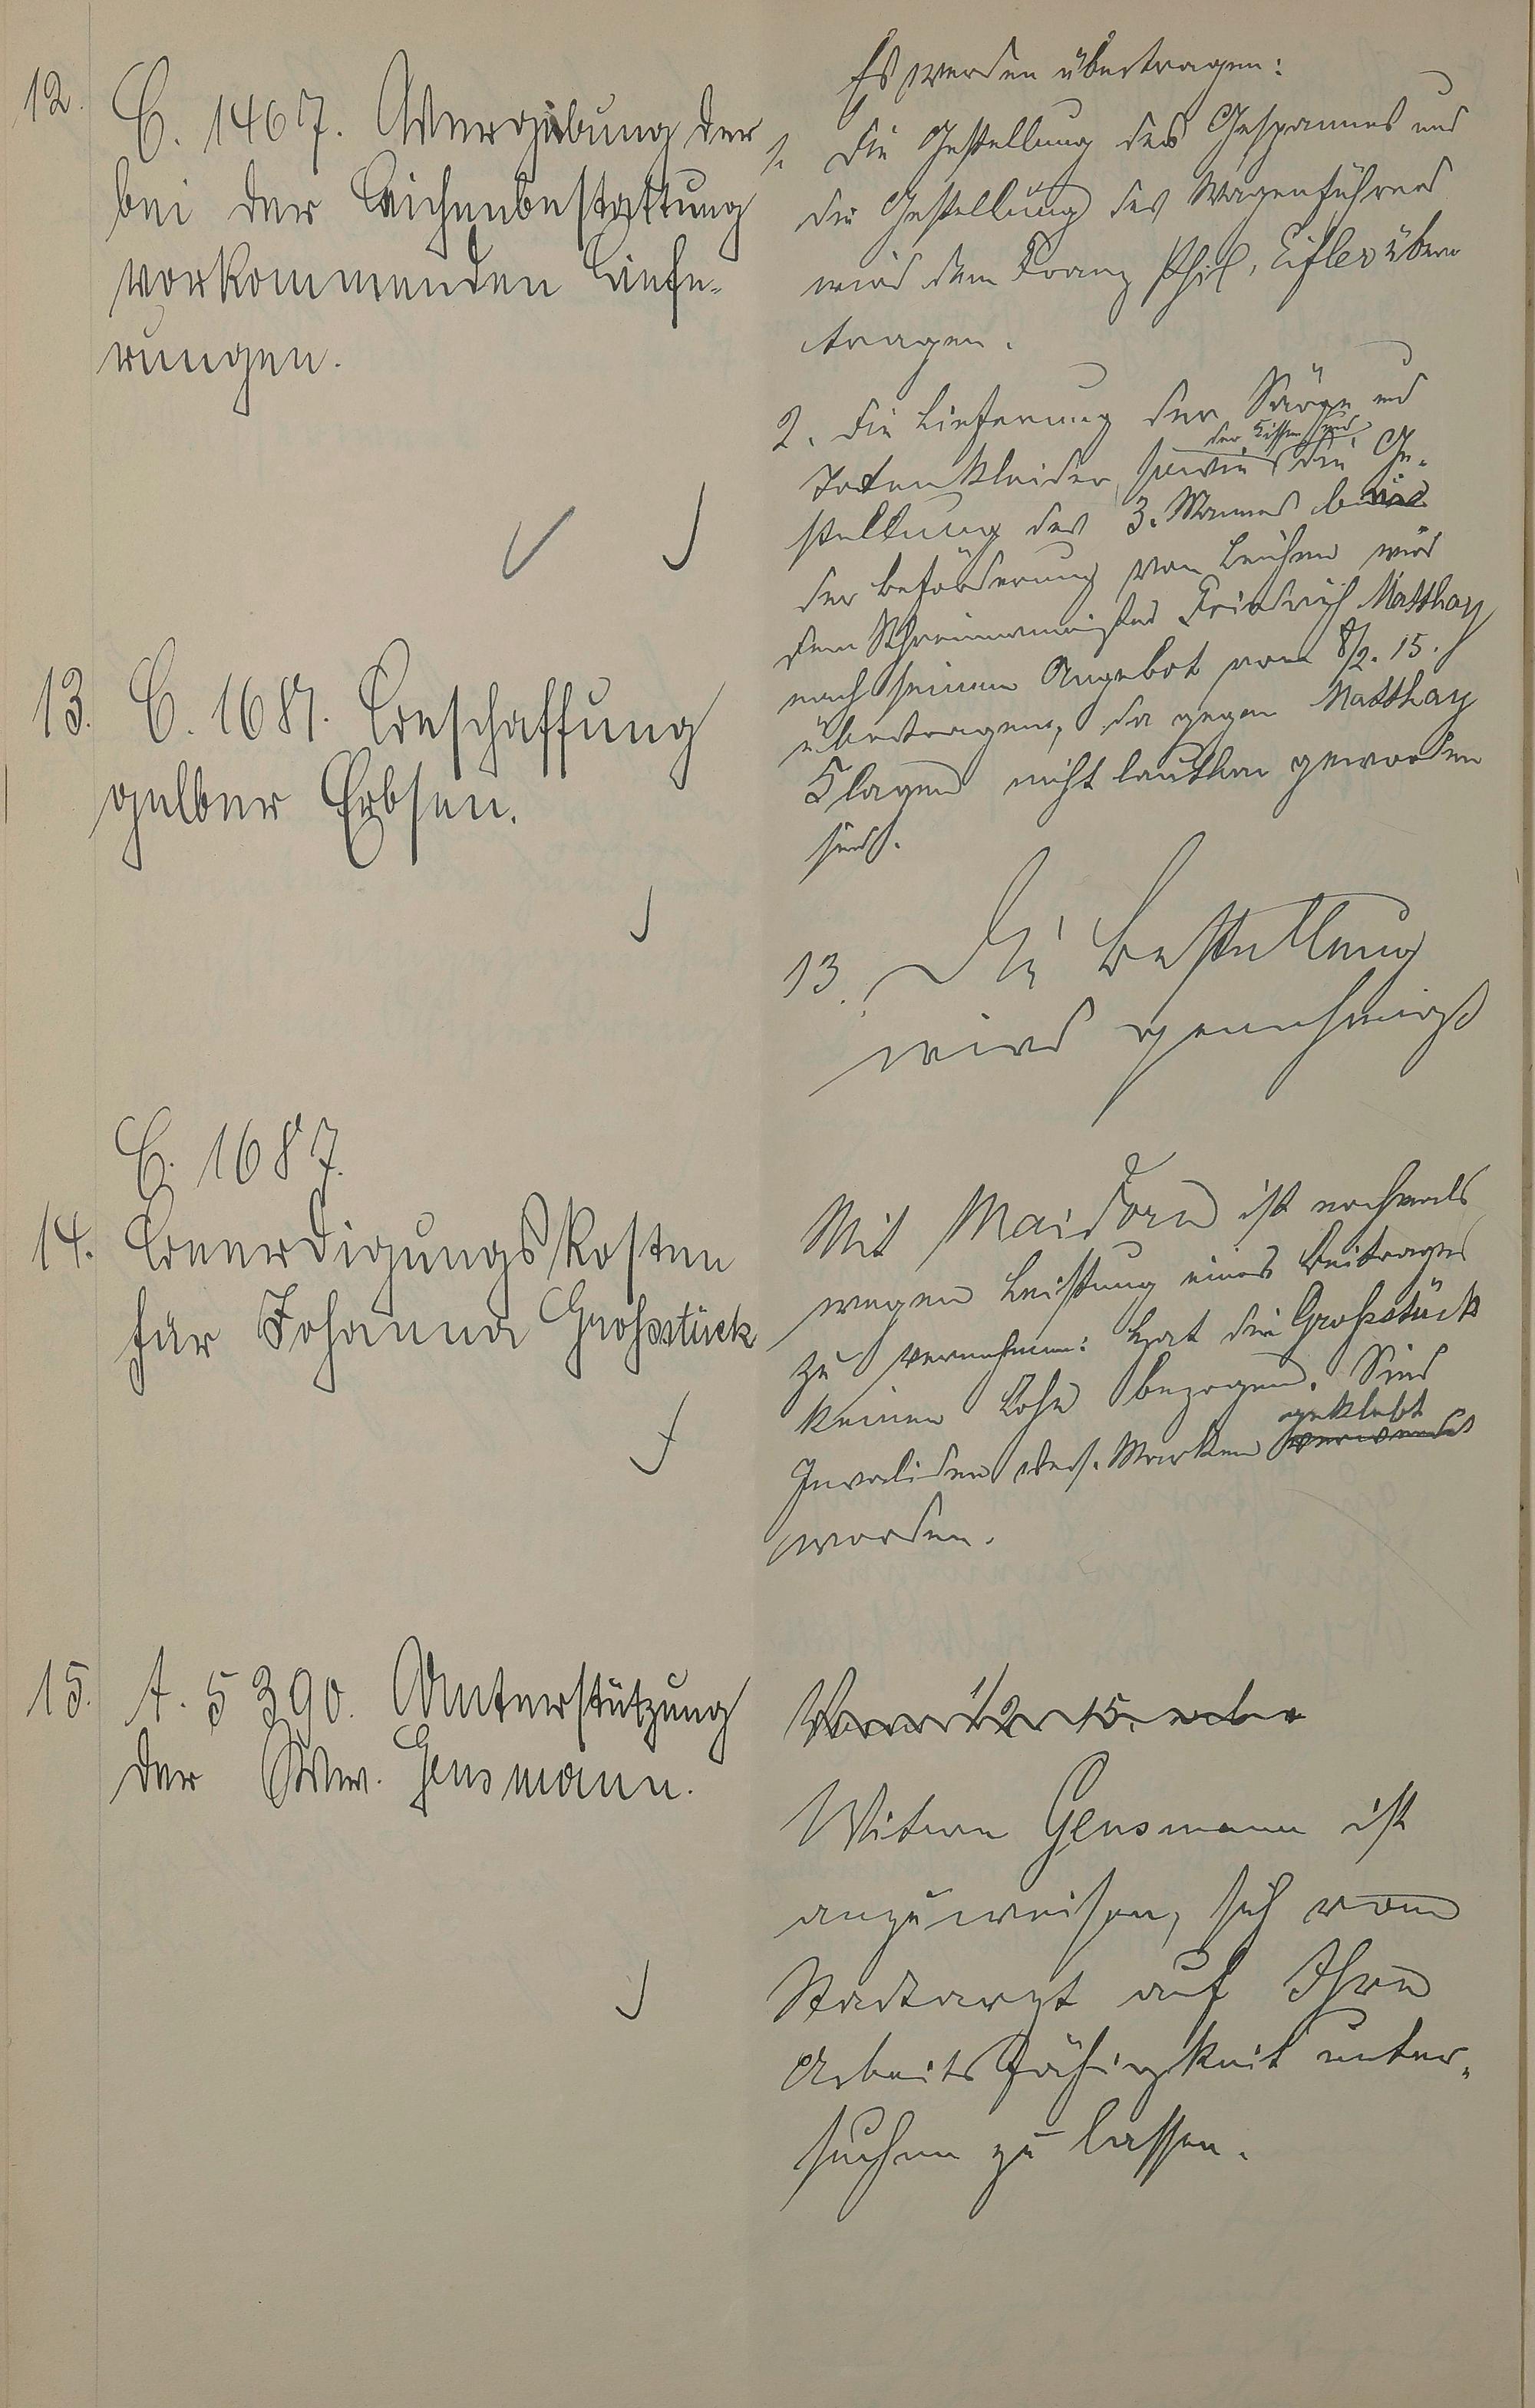 12.
C. 1467. Vergebung der
bei der Leichenbestattung
vorkommenden Liefe-
rungen.
Es werden übertragen:
1. Die Gestellung des Gespannes und
die Gestellung des Wagenführers
wird dem Franz Phil. Eifler über
tragen.
2. Die Lieferung der Särge und
der Kissen und
Totenkleider, sowie die Ge-
stellung des 3. Mannes bei
der Beförderung von Leichen wird
dem Schreinermeister Friedrich Matthay
nach seinem Angebot vom 8/2. 15.
übertragen, da gegen Matthay
Klagen nicht lautbar geworden
sind.
13. C. 1681. Beschaffung
gelber Erbsen.
13. Die Bestellung
wird genehmigt
C. 1687.
14. Beerdigungskosten
für Johanna Grossstück
Mit Maidorn ist nochmals
wegen Leistung eines Beitrages
zu vernehmen: Hat die Grossstück
keinen Lohn bezogen. Sind
geklebt
Invaliden vers. Marken verwendet
worden.
15. A. 5390. Unterstützung
der Ww. Gensmann.
Vom 1/2 15. ab
Witwe Gensmann ist
anzuweisen, sich vom
Stadtarzt auf Ihre
Arbeitsfähigkeit unter-
suchen zu lassen.